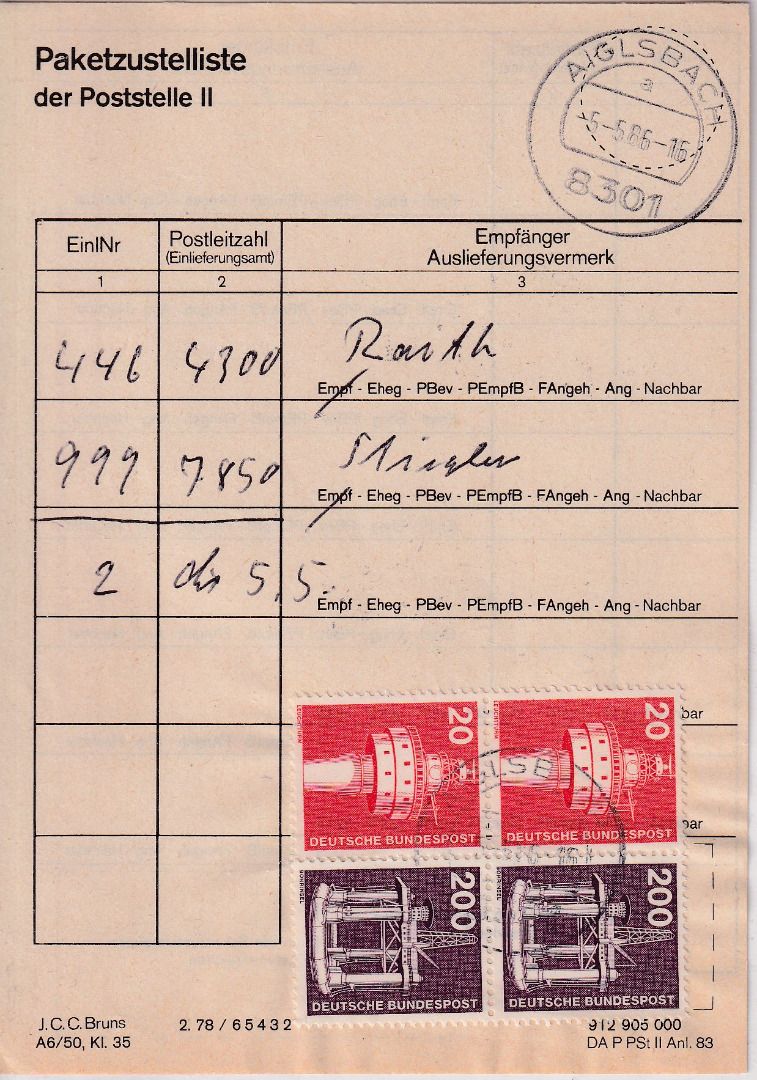 Paketzustelliste
der Poststelle II
AIGLSBACH
a
-5-5.86-16
8301
EinlNr
Postleitzahl
(Einlieferungsamt)
Empfänger
Auslieferungsvermerk
1 2 3
446 4300 Raith
Empf - Eheg - PBev - PEmpfB - FAngeh - Ang - Nachbar
999 7850 Stiegler
Empf - Eheg - PBev - PEmpfB - FAngeh - Ang - Nachbar
2 5.5.
Empf - Eheg - PBev - PEmpfB - FAngeh - Ang - Nachbar
bar
bar
LEUCHTTURM
20
DEUTSCHE BUNDESPOST
LEUCHTTURM
20
DEUTSCHE BUNDESPOST
BOHRINSEL
200
DEUTSCHE BUNDESPOST
BOHRINSEL
200
DEUTSCHE BUNDESPOST
J.C.C. Bruns
A6/50, Kl. 35
2.78 / 65432
912 905 000
DA P PSt II Anl. 83